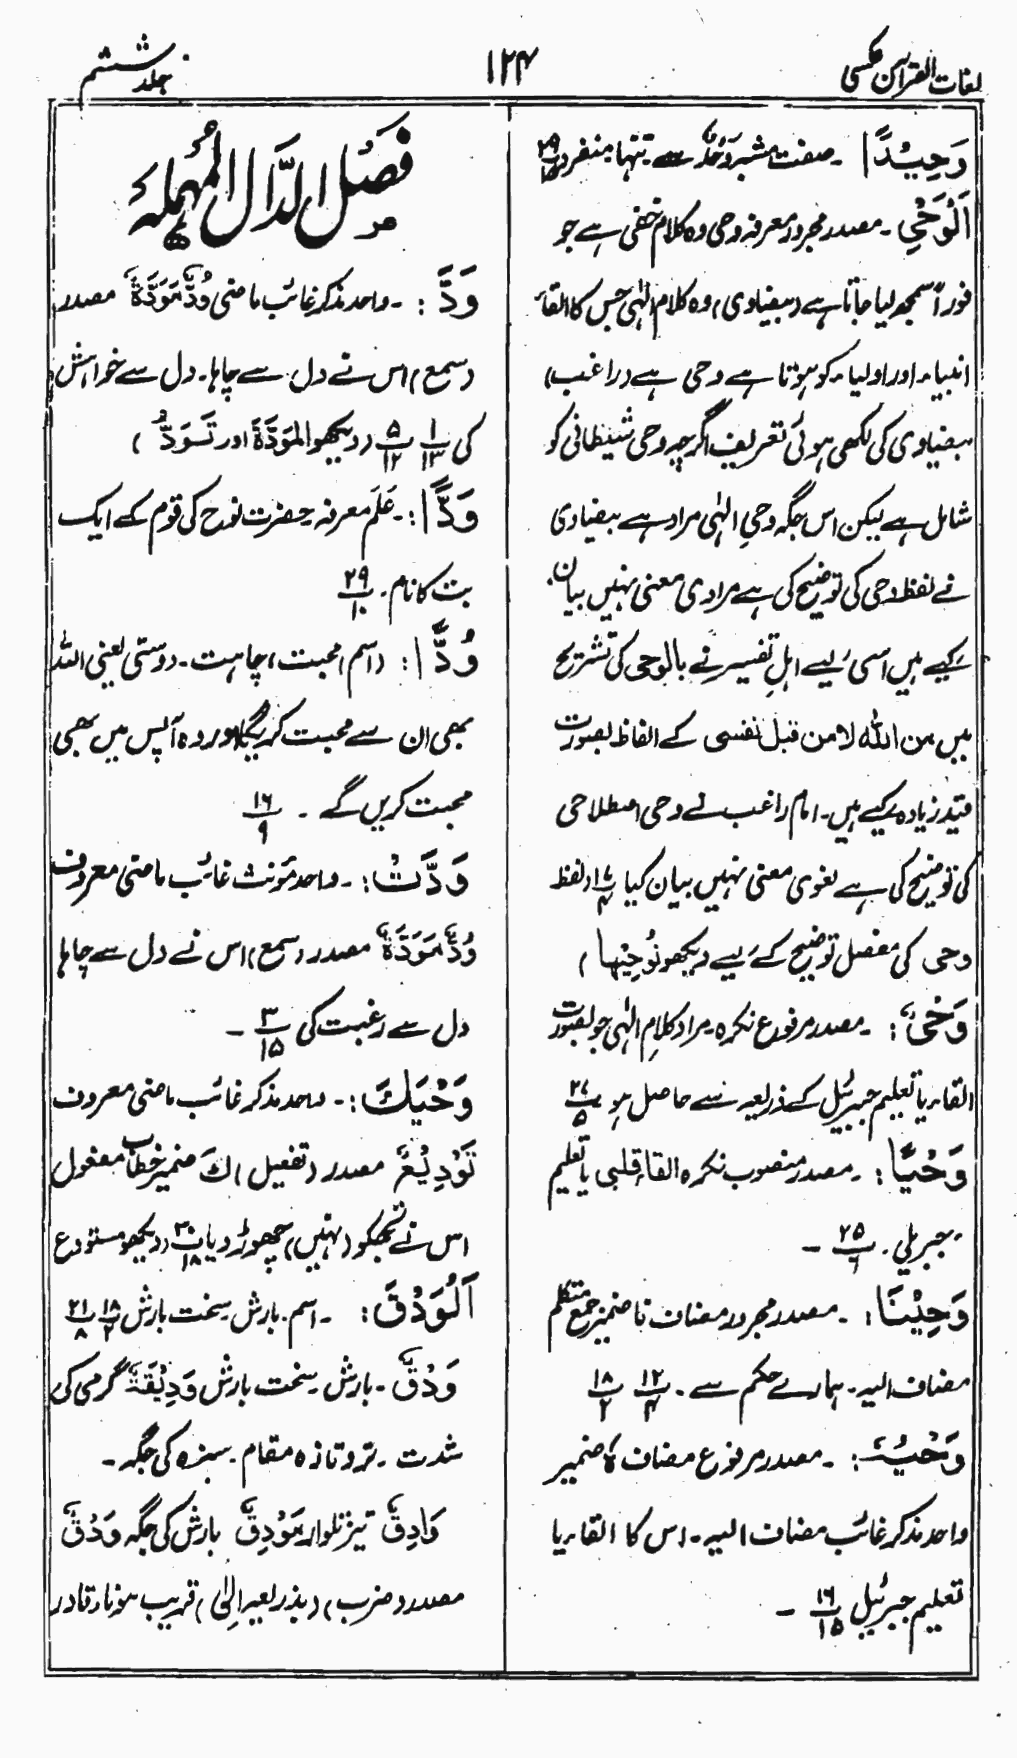 لغات القرآن عکسی
۱۲۴
جلد ششم
وَحِيْدًا ۔ صفت مشبہ وَحْدٌ سے تنہا منفرد ۲۹/۱۵
اَلْوَحْيِ ۔ مصدر مجرور معرفہ وحی وہ کلام خفی ہے جو
فوراً سمجھ لیا جاتا ہے (بیضاوی) وہ کلام الٰہی جس کا القاء
انبیاء اور اولیاء کو ہوتا ہے وحی ہے (راغب)
بیضاوی کی لکھی ہوئی تعریف اگرچہ وحی شیطانی کو
شامل ہے لیکن اس جگہ وحیِ الٰہی مراد ہے بیضاوی
نے لفظ وحی کی توضیح کی ہے مرادی معنی نہیں بیان
کیے ہیں اسی لیے اہلِ تفسیر نے بالوحی کی تشریح
میں من اللہ لا من قبل نفسی کے الفاظ بصورت
قید زیادہ کیے ہیں۔ امام راغب نے وحی اصطلاحی
کی توضیح کی ہے لغوی معنی نہیں بیان کیا ۱۷/۴ (لفظ
وحی کی مفصل توضیح کے لیے دیکھو نُوْحِيْهَا)
وَحْیٌ: ۔ مصدر مرفوع نکرہ۔ مراد کلامِ الٰہی جو بصورت
القاء یا تعلیم جبرئیل کے ذریعہ سے حاصل ہو ۲۷/۵
وَحْيًا: ۔ مصدر منصوب نکرہ القاءِ قلبی یا تعلیم
جبریلی ۔ ۲۵/۶ ۔
وَحْيِنَا: ۔ مصدر مجرور مضاف نا ضمیر جمع متکلم
مضاف الیہ۔ ہمارے حکم سے ۔ ۱۲/۴ ۱۸/۲
وَحْيُهٗ: ۔ مصدر مرفوع مضاف ہٗ ضمیر
واحد مذکر غائب مضاف الیہ۔ اس کا القاء یا
تعلیم جبرئیل ۱۶/۱۵ ۔
فَصْلُ الدَّالِ الْمُهْمَلَةِ
وَدَّ: ۔ واحد مذکر غائب ماضی وُدٌّ مَوَدَّةٌ مصدر
(سمع) اس نے دل سے چاہا۔ دل سے خواہش
کی ۱/۱۳ ۵/۱۲ (دیکھو الْمَوَدَّةَ اور تَوَدُّ)
وَدًّا: ۔ عَلَم معرفہ۔ حضرت نوح کی قوم کے ایک
بت کا نام۔ ۲۹/۱۰
وُدًّا: (اسم) محبت، چاہت۔ دوستی یعنی اللہ
بھی ان سے محبت کریگا اور وہ آپس میں بھی
محبت کریں گے ۔ ۱۶/۹
وَدَّتْ: ۔ واحد مؤنث غائب ماضی معروف
وُدٌّ مَوَدَّةٌ مصدر (سمع) اس نے دل سے چاہا
دل سے رغبت کی ۳/۱۵ ۔
وَدَّعَكَ: ۔ واحد مذکر غائب ماضی معروف
تَوْدِيْعٌ مصدر (تفعیل) كَ ضمیر خطاب مفعول
اس نے تجھکو (نہیں) چھوڑ دیا ۳۰/۱۸ (دیکھو مستودع
اَلْوَدْقَ: ۔ اسم۔ بارش۔ سخت بارش ۱۸/۱۲ ۲۱/۸
وَدْقٌ ۔ بارش۔ سخت بارش وَدِيْقَةٌ گرمی کی
شدت ۔ تروتازہ مقام۔ سبزہ کی جگہ ۔
وَادِقٌ تیز تلوار مَوْدِقٌ بارش کی جگہ وَدْقٌ
مصدر (ضرب) (بذریعہ اِلٰی) قریب ہونا، قادر